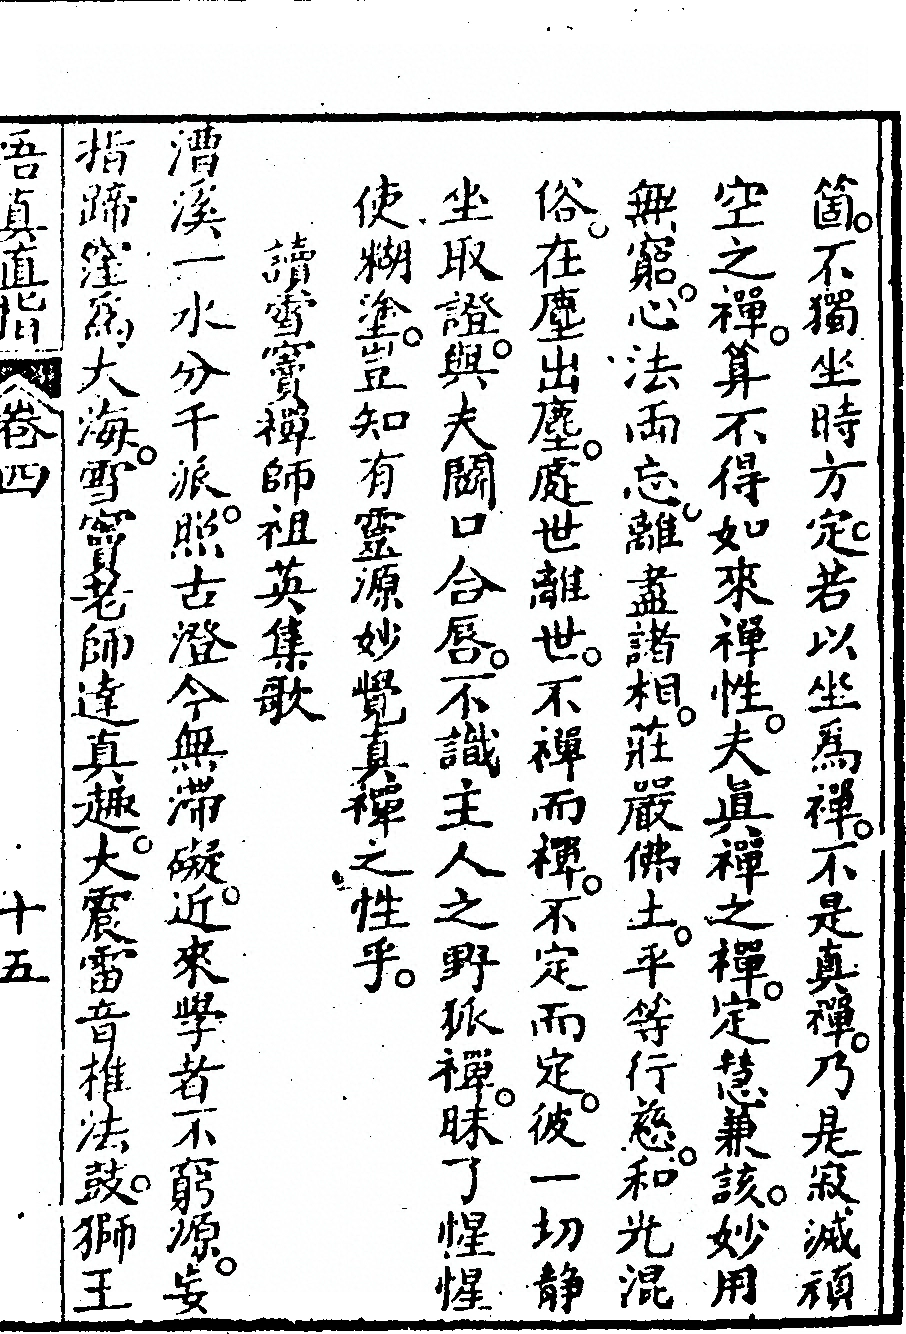 箇。不獨坐時方定。若以坐爲禪。不是真禪。乃是寂滅頑
空之禪。算不得如來禪性。夫眞禪之禪。定慧兼該。妙用
無窮。心法両忘。離盡諸相。莊嚴佛土。平等行慈。和光混
俗。在塵出塵。處世離世。不禪而禪。不定而定。彼一切静
坐取證。與夫闘口合唇。不識主人之野狐禪。昧了惺惺
使糊塗。豈知有靈源妙覺真禪之性乎。
讀雪竇禪師祖英集歌
漕溪一水分千派。照古澄今無滞礙。近來學者不窮源。妄
指蹄窪爲大海。雪竇老師達真趣。大震雷音椎法鼓。獅王
悟真直指 卷四 十五